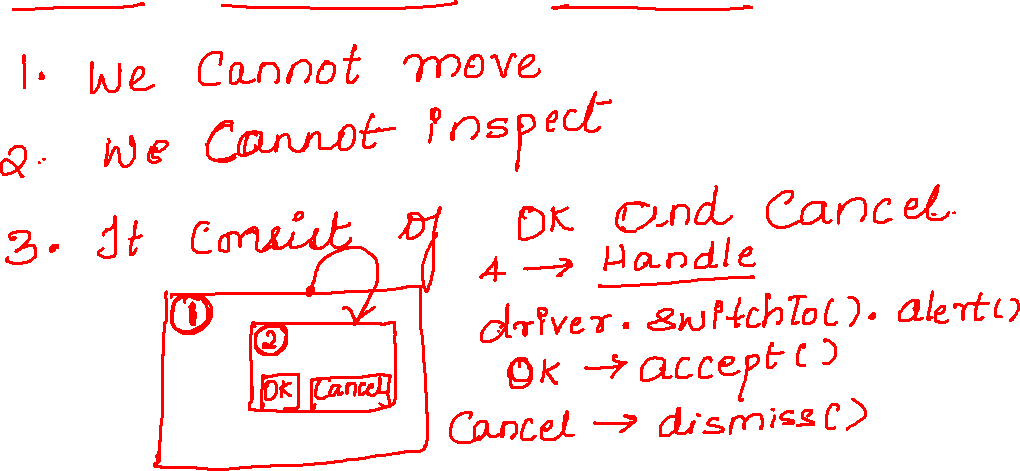 1. We Cannot move
2. We Cannot inspect
3. It Consist of OK and Cancel.
4 → Handle
driver.switchTo().alert()
OK → accept()
Cancel → dismiss()
1
2
OK Cancel